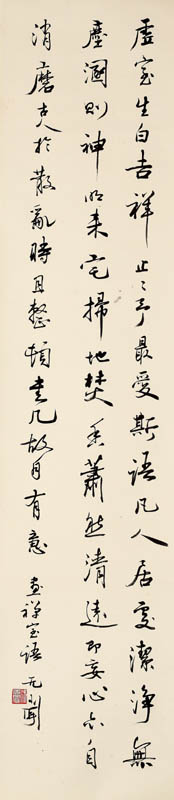 虛室生白吉祥止〻予最愛斯語凡人居處潔淨無
塵溷則神明來宅掃地焚香蕭然清遠即妄心亦自
消磨古人於散亂時且整頓書几故自有意 畫禪室語 无聞